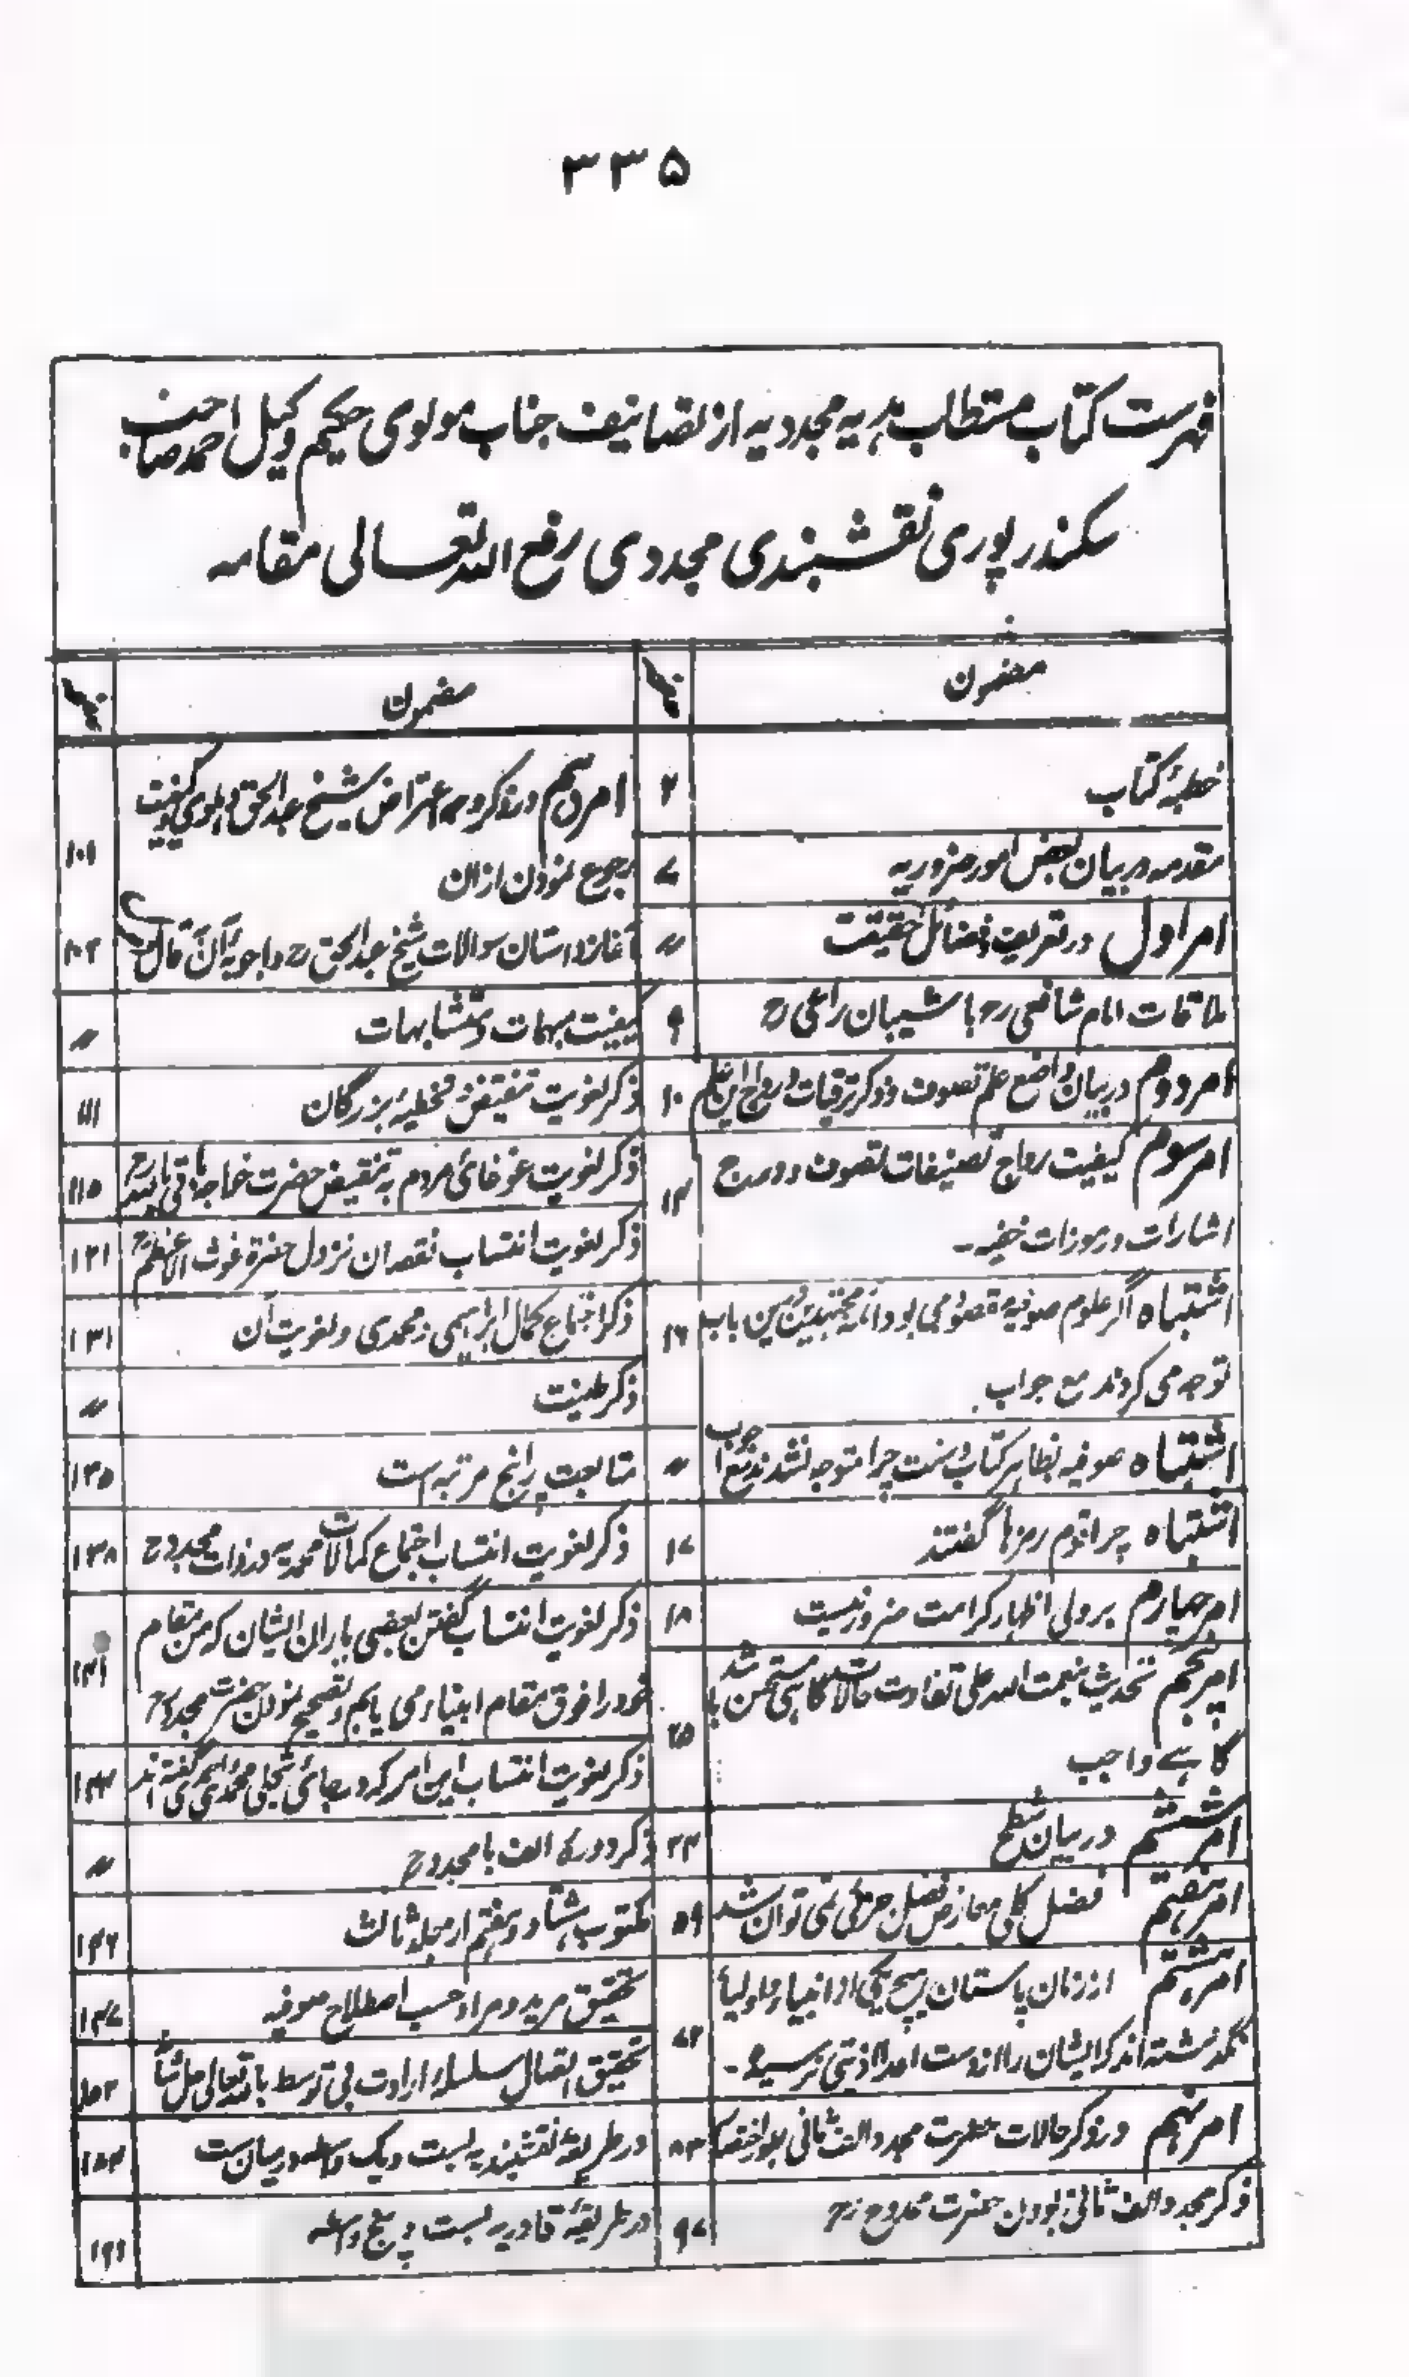 ۳۳۵
فہرست کتاب مستطاب ہدیہ مجددیہ از تصانیف جناب مولوی حکیم وکیل احمد صاحب
سکندرپوری نقشبندی مجددی رفع اللہ تعالی مقامہ
مضمون
خطبۂ کتاب ۲
مقدمہ در بیان بعض امور ضروریہ ۷
امر اول در تعریف و فضائل حقیقت 〃
ملاقات امام شافعی رح با شیبان راعی رح ۹
امر دوم در بیان واضع علم تصوف و ذکر ترقیات و رواج این علم ۱۰
امر سوم کیفیت رواج تصنیفات تصوف و درج ۱۴
اشارات و رموزات خفیہ ۔
اشتباہ اگر علوم صوفیہ مقصود می بود ائمہ مجتہدین درین باب ۱۶
توجہ می کردند مع جواب
اشتباہ صوفیہ بظاہر کتاب و سنت چرا متوجہ نشدند مع جواب 〃
اشتباہ چرا قوم رمزہا گفتند ۱۷
امر چہارم بر ولی اظہار کرامت ضرور نیست ۱۸
امر پنجم تحدیث بنعمت اللہ علی تفاوت حالات گاہی مستحسن باشد ۲۵
گاہے واجب
امر ششم در بیان شطح ۲۴
امر ہفتم فضل کلی معارض فضل جزئی نمی توان شد ۵۹
امر ہشتم از زمان پاستان ہیچ یکی از انبیا و اولیاء ۷۲
نگذشتہ اند کہ ایشان را از دست اعدا اذیتی نرسیدہ ۔
امر نہم در ذکر حالات حضرت مجدد الف ثانی بطور اختصار ۸۳
ذکر مجدد الف ثانی بودن حضرت ممدوح رح ۹۷
مضمون
امر دہم در ذکر وجہ اعتراض شیخ عبد الحق دہلوی و کیفیت ۱۰۱
رجوع نمودن ازان
آغاز داستان سوالات شیخ عبد الحق رح و اجوبۂ آن قال ۱۰۲
کیفیت مبہمات و متشابہات 〃
ذکر لغویت تنقیض و تخطیۂ بزرگان ۱۱۱
ذکر لغویت غوغائی مردم بہ تنقیض حضرت خواجہ باقی باللہ رح ۱۱۵
ذکر لغویت انتساب نقصان نزول حضرت غوث الاعظم رح ۱۲۱
ذکر اجتماع کمال ابراہیمی و محمدی و لغویت آن ۱۳۱
ذکر طینت 〃
متابعت را پنج مرتبہ است ۱۳۵
ذکر لغویت انتساب اجتماع کمالات محمدیہ در ذات مجدد رح ۱۳۸
ذکر لغویت انتساب گفتن بعضی یاران ایشان کہ من مقام ۱۴۱
خود را فوق مقام انبیاء می یابم و تصحیح نمودن حضرت مجدد رح
ذکر لغویت انتساب این امر کہ در جائی تجلی محمدی گفتہ اند ۱۴۴
ذکر دورۂ الف با مجدد رح 〃
مکتوب ہشتاد و ہفتم از جلد ثالث ۱۴۶
تحقیق مرید و مراد حسب اصطلاح صوفیہ ۱۴۷
تحقیق اتصال سلسلہ ارادت بی توسط باللہ تعالی جل شانہ ۱۵۲
در طریقۂ نقشبندیہ بست و یک واسطہ درمیان ست
در طریقۂ قادریہ بست و پنج واسطہ